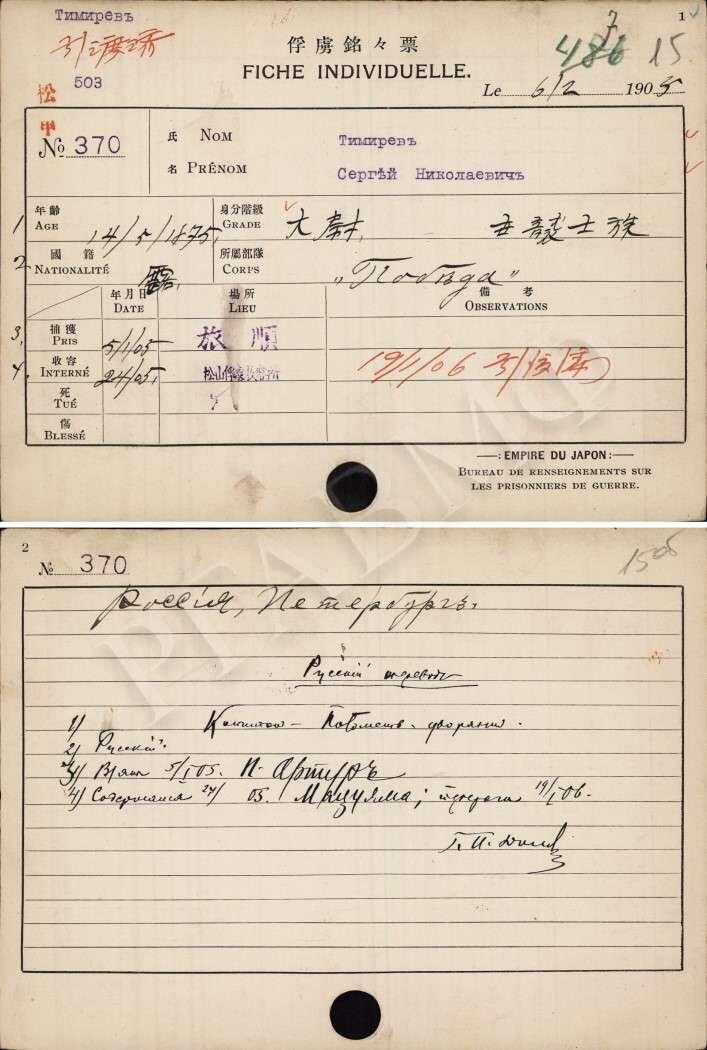 Тимиревъ
引渡済
松 503
486 15
1
俘虜銘々票
FICHE INDIVIDUELLE.
Le 6/2 1905
甲
No 370
氏 NOM Тимиревъ
名 PRÉNOM Сергѣй Николаевичъ
1 年齢 AGE 14/5/1875.
身分階級 GRADE 大尉 世襲士族
2 國籍 NATIONALITÉ 露.
所屬部隊 CORPS „Побѣда"
年月日 DATE
場所 LIEU
備考 OBSERVATIONS
3. 捕獲 PRIS 5/1/05. 旅順
4. 收容 INTERNÉ 24/05. 松山俘虜收容所
19/1/06 引渡済
死 TUÉ
傷 BLESSÉ
EMPIRE DU JAPON:
BUREAU DE RENSEIGNEMENTS SUR
LES PRISONNIERS DE GUERRE.
РГАВМФ
2
No 370
1505
Россія, Петербургъ.
Русскій переводъ
1) Капитан - Потомств. дворянин.
2) Русскій.
3) Взят 5/I 05. П-Артуръ
4) Содержался 24/ 05. Мацуяма; передача 19/I 06.
РГАВМФ